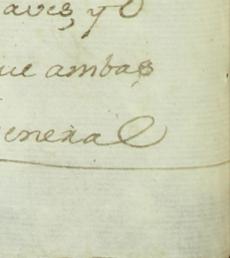 aves, y
ue ambas
eneral